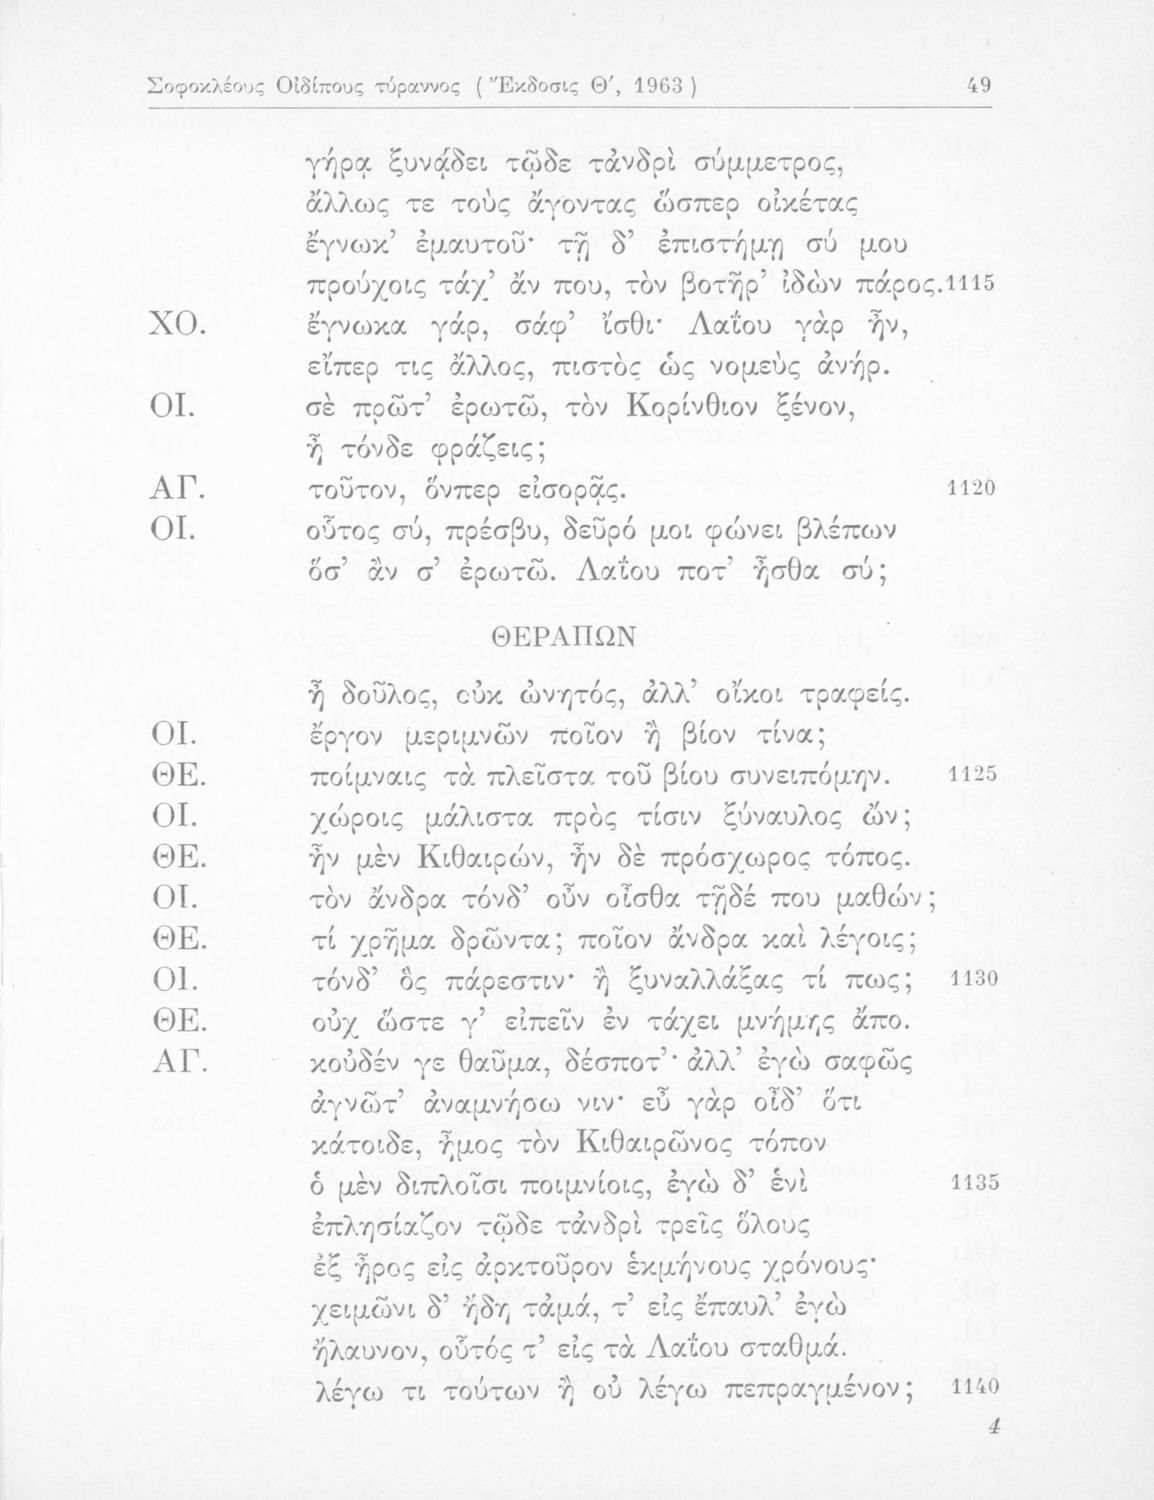 Σοφοκλέους Οἰδίπους τύραννος ( Ἔκδοσις Θ΄, 1963 ) 49
γήρᾳ ξυνᾴδει τῷδε τἀνδρὶ σύμμετρος,
ἄλλως τε τοὺς ἄγοντας ὥσπερ οἰκέτας
ἔγνωκ’ ἐμαυτοῦ· τῇ δ’ ἐπιστήμῃ σύ μου
προύχοις τάχ’ ἄν που, τὸν βοτῆρ’ ἰδὼν πάρος. 1115
ΧΟ. ἔγνωκα γάρ, σάφ’ ἴσθι· Λαΐου γὰρ ἦν,
εἴπερ τις ἄλλος, πιστὸς ὡς νομεὺς ἀνήρ.
ΟΙ. σὲ πρῶτ’ ἐρωτῶ, τὸν Κορίνθιον ξένον,
ἦ τόνδε φράζεις;
ΑΓ. τοῦτον, ὅνπερ εἰσορᾷς. 1120
ΟΙ. οὗτος σύ, πρέσβυ, δεῦρό μοι φώνει βλέπων
ὅσ’ ἄν σ’ ἐρωτῶ. Λαΐου ποτ’ ἦσθα σύ;
ΘΕΡΑΠΩΝ
ἦ δοῦλος, οὐκ ὠνητός, ἀλλ’ οἴκοι τραφείς.
ΟΙ. ἔργον μεριμνῶν ποῖον ἢ βίον τίνα;
ΘΕ. ποίμναις τὰ πλεῖστα τοῦ βίου συνειπόμην. 1125
ΟΙ. χώροις μάλιστα πρὸς τίσιν ξύναυλος ὤν;
ΘΕ. ἦν μὲν Κιθαιρών, ἦν δὲ πρόσχωρος τόπος.
ΟΙ. τὸν ἄνδρα τόνδ’ οὖν οἶσθα τῇδέ που μαθών;
ΘΕ. τί χρῆμα δρῶντα; ποῖον ἄνδρα καὶ λέγοις;
ΟΙ. τόνδ’ ὃς πάρεστιν· ἢ ξυναλλάξας τί πως; 1130
ΘΕ. οὐχ ὥστε γ’ εἰπεῖν ἐν τάχει μνήμης ἄπο.
ΑΓ. κοὐδέν γε θαῦμα, δέσποτ’· ἀλλ’ ἐγὼ σαφῶς
ἀγνῶτ’ ἀναμνήσω νιν· εὖ γὰρ οἶδ’ ὅτι
κάτοιδε, ἦμος τὸν Κιθαιρῶνος τόπον
ὁ μὲν διπλοῖσι ποιμνίοις, ἐγὼ δ’ ἑνὶ 1135
ἐπλησίαζον τῷδε τἀνδρὶ τρεῖς ὅλους
ἐξ ἦρος εἰς ἀρκτοῦρον ἑκμήνους χρόνους·
χειμῶνι δ’ ἤδη τἀμά, τ’ εἰς ἔπαυλ’ ἐγὼ
ἤλαυνον, οὗτός τ’ εἰς τὰ Λαΐου σταθμά.
λέγω τι τούτων ἢ οὐ λέγω πεπραγμένον; 1140
4